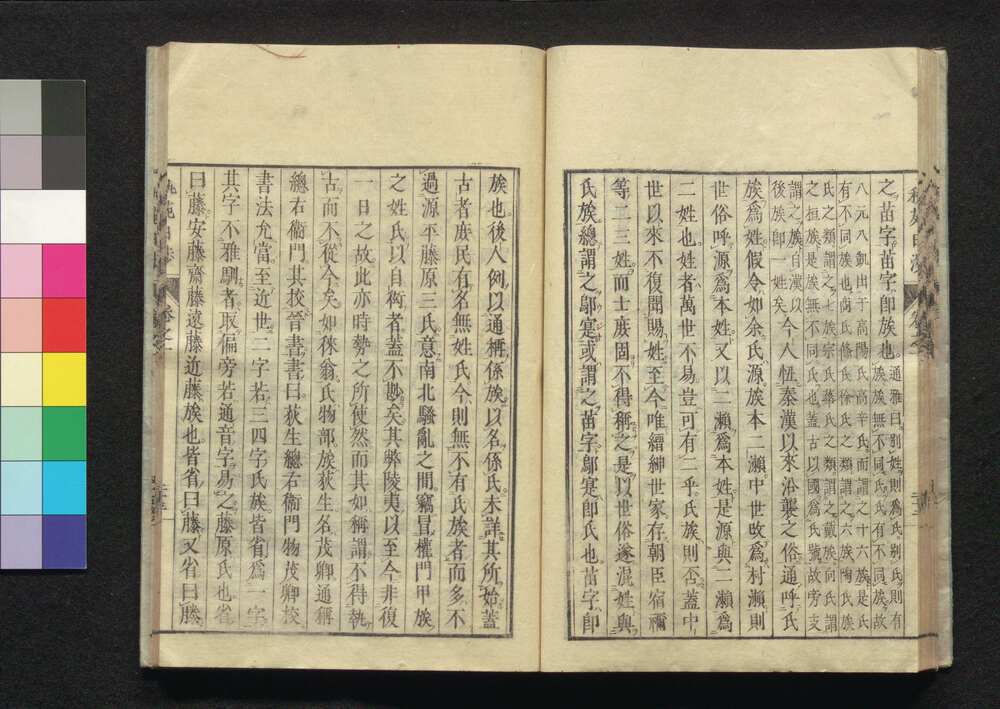 之苗字苗字卽族也通雅曰別姓則爲氏別氏則有
族族無不同氏氏有不同族故
八元八凱出于高陽氏高辛氏而謂之十六族是氏
有不同族也商氏條氏徐氏之類謂之六族陶氏
氏之類謂之七族宗氏華氏之類謂之戴族向氏謂
之桓族是族無不同氏也蓋古以國爲氏號故旁支
謂之族自漢以
後族卽一姓矣今人恇秦漢以來沿襲之俗通呼氏
族爲姓假令如余氏源族本二瀨中世改爲村瀨則
世俗呼源爲本姓又以二瀨爲本姓是源與二瀨爲
二姓也姓者萬世不易豈可有二乎氏族則否蓋中
世以來不復聞賜姓至今唯縉紳世家存朝臣宿禰
等二三姓而士庶固不得稱之是以世俗遂混姓與
氏族總謂之鄔寔或謂之苗字鄔寔卽氏也苗字卽
族也後人例以通稱係族以名係氏未詳其所始蓋
古者庶民有名無姓氏今則無不有氏族者而多不
過源平藤原三氏意南北騷亂之間竊冒權門甲族
之姓氏以自衒者蓋不尠矣其弊陵夷以至今非復
一日之故此亦時勢之所使然而其如稱謂不得執
古而不從今矣如徠翁氏物部族荻生名茂卿通稱
總右衞門其挍晉書書曰荻生總右衞門物茂卿挍
書法允當至近世二字若三四字氏族皆省爲一字
其字不雅馴者取偏旁若通音字易之藤原氏也省
曰藤安藤齋藤遠藤近藤族也皆省曰藤又省曰滕